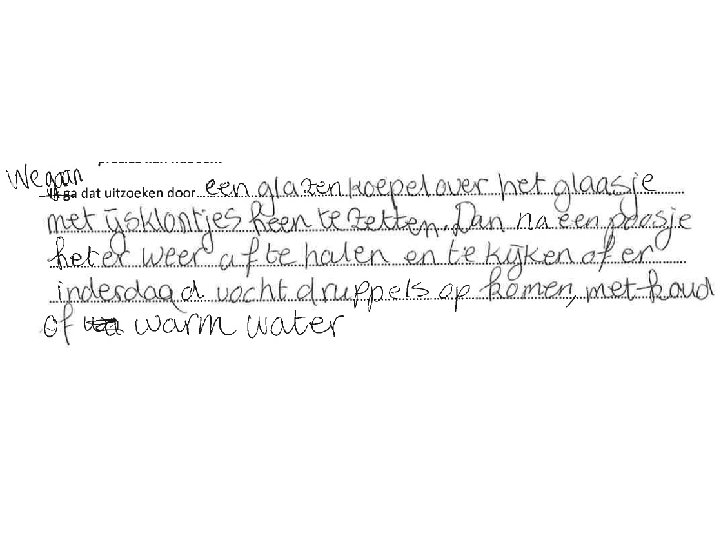 We gaan
dat uitzoeken door een glazen koepel over het glaasje
met ijsklontjes heen te zetten. Dan na een poosje
het er weer af te halen en te kijken of er
inderdaad vocht druppels op komen, met koud
of warm water